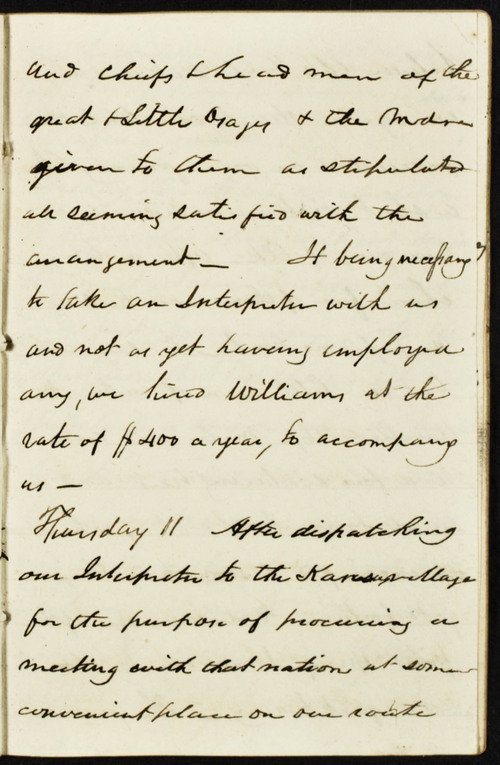 and chiefs & head men of the
great & Little Osages & the Mdse
given to them as stipulated
all seeming satisfied with the
arrangement — It being necessary
to take an Interpreter with us
and not as yet haveing employed
any, we hired Williams at the
rate of $400 a year, to accompany
us —
Thursday 11 After dispatching
our Interpreter to the Kansas village
for the purpose of procuring a
meeting with that nation at some
convenient place on our route